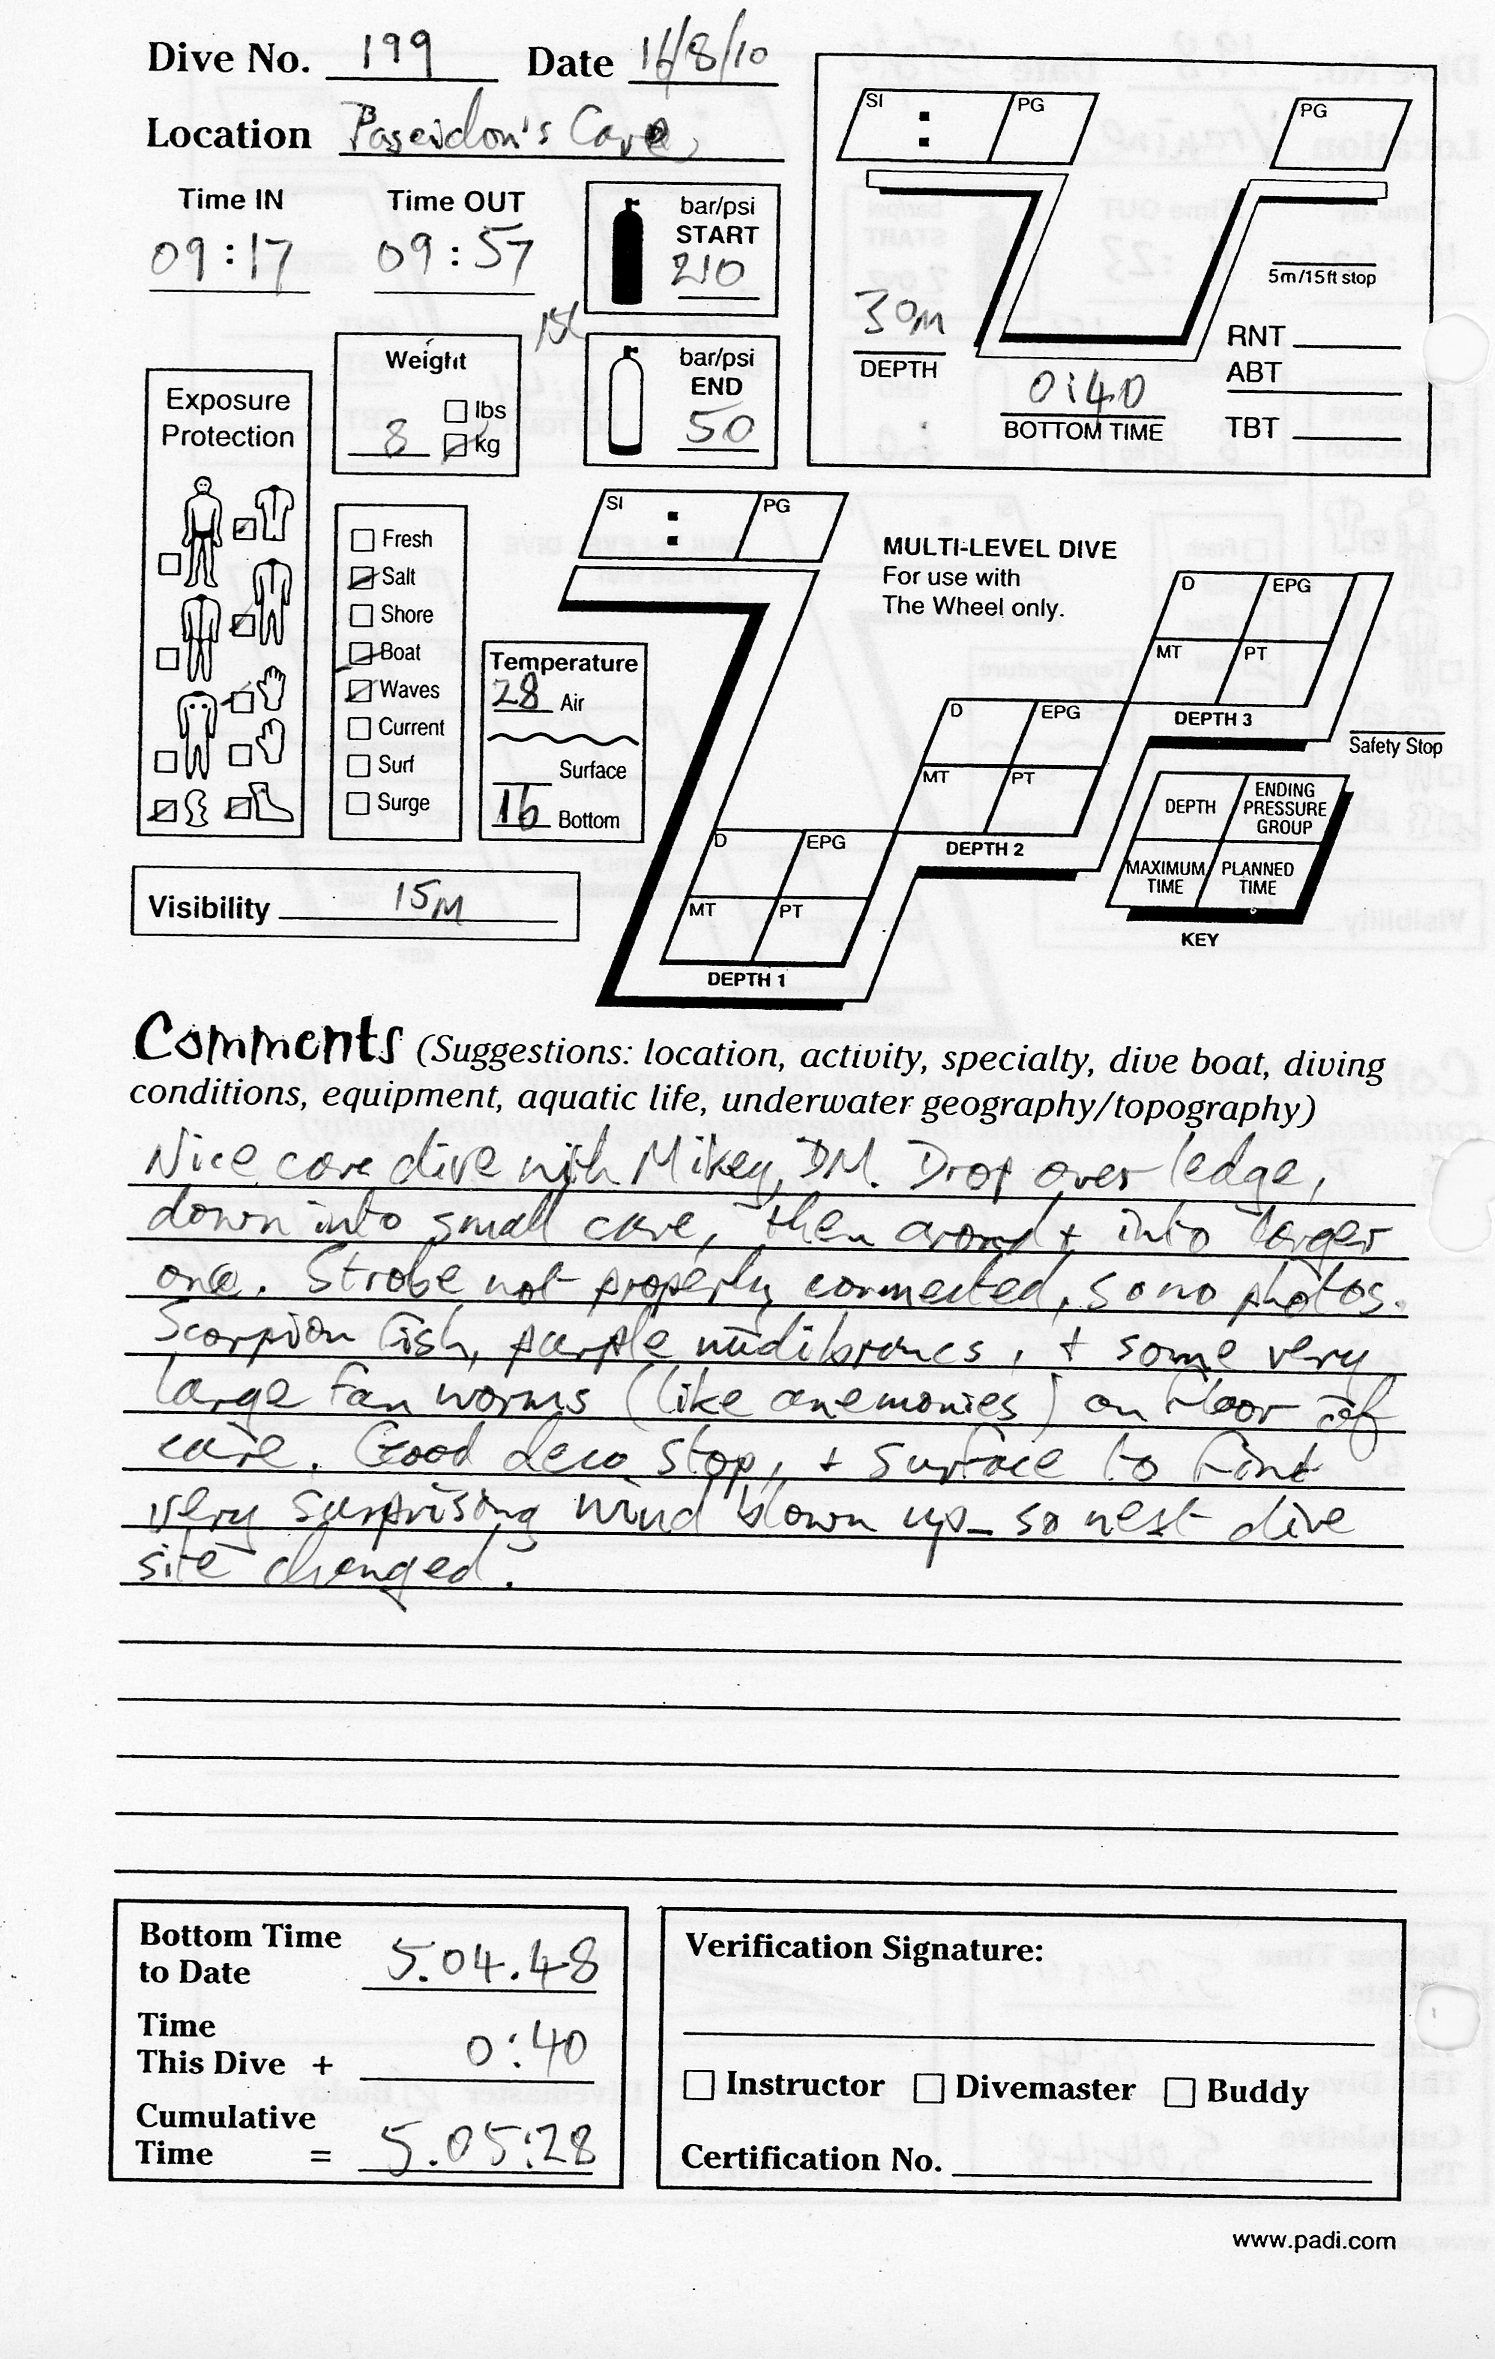 Dive No. 199 Date 16/8/10
Location Poseidon's Cave
Time IN Time OUT
09:17 09:57
bar/psi
START
210
1st
bar/psi
END
50
Weight
lbs
8 kg
SI : PG
PG
5m/15ft stop
30m
DEPTH
0:40
BOTTOM TIME
RNT
ABT
TBT
Exposure
Protection
Fresh
Salt
Shore
Boat
Waves
Current
Surf
Surge
Temperature
28 Air
Surface
16 Bottom
Visibility 15m
SI : PG
MULTI-LEVEL DIVE
For use with
The Wheel only.
D EPG
MT PT
DEPTH 1
D EPG
MT PT
DEPTH 2
D EPG
MT PT
DEPTH 3
Safety Stop
DEPTH ENDING PRESSURE GROUP
MAXIMUM TIME PLANNED TIME
KEY
Comments (Suggestions: location, activity, specialty, dive boat, diving
conditions, equipment, aquatic life, underwater geography/topography)
Nice cave dive with Mikey, DM. Drop over ledge,
down into small cave, then around + into larger
one. Strobe not properly connected, so no photos.
Scorpion fish, purple nudibrancs, + some very
large fan worms (like anemonies) on floor of
cave. Good deco stop, + surface to find
very surprising wind blown up - so next dive
site changed.
Bottom Time
to Date 5.04.48
Time
This Dive + 0:40
Cumulative
Time = 5.05:28
Verification Signature:
Instructor Divemaster Buddy
Certification No.
www.padi.com